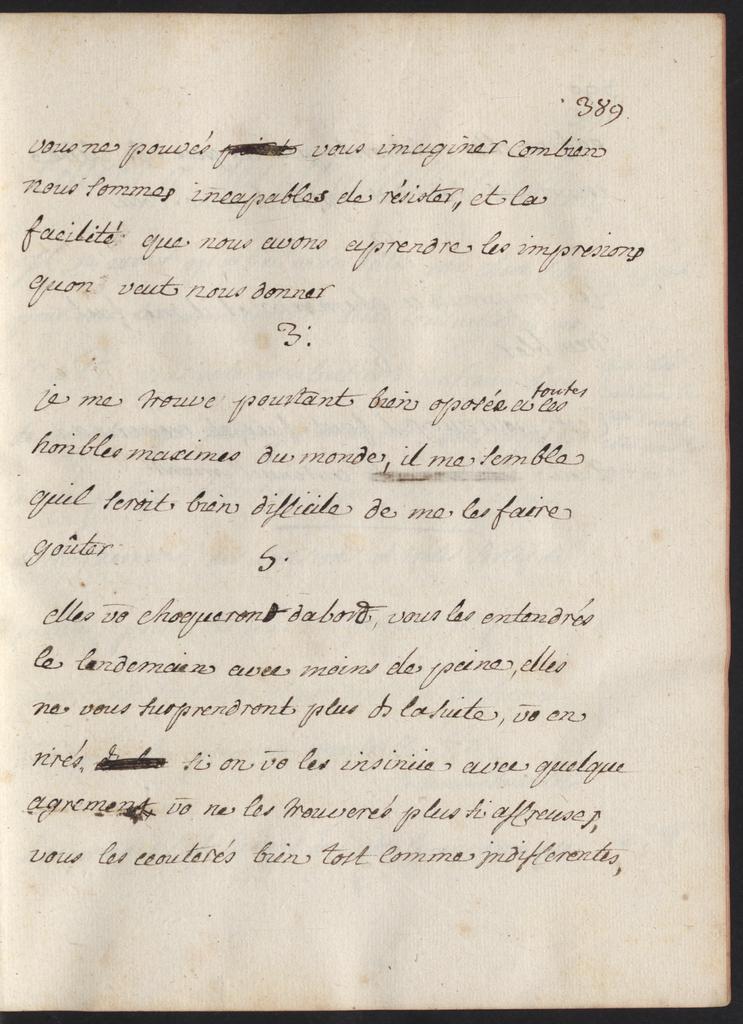 389
vous ne pouvés point vous imaginer combien
nous sommes incapables de résister, et la
facilité que nous avons aprendre les impresions
quon veut nous donner
3.
je me trouve pourtant bien oposée a toutes ces
horibles maximes du monde, il me semble
quil seroit bien dificile de me les faire
goûter
5.
elles vo choqueront dabord, vous les entendrés
le lendemain avec moins de peine, elles
ne vous surprendront plus ds la suite, vo en
rirés, si on vo les insinüe avec quelque
agrement vo ne les trouverés plus si affreuses,
vous les ecouterés bien tost comme indifferentes,